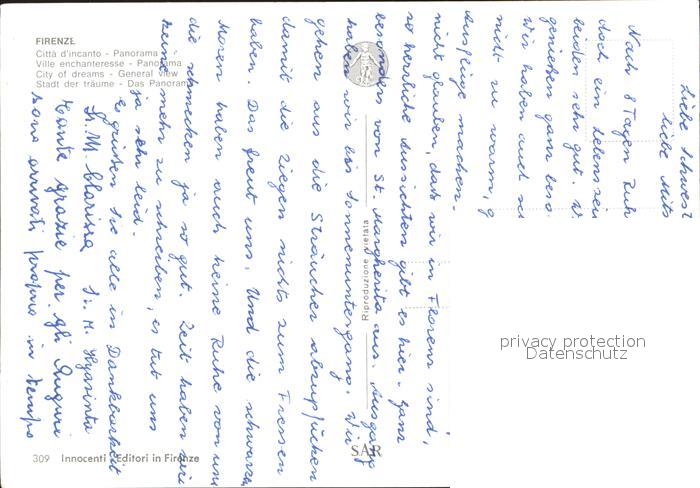 FIRENZE
Città d'incanto - Panorama
Ville enchanteresse - Panorama
City of dreams - General view
Stadt der träume - Das Panorama
Liebe Schwest
liebe Mits
Nach 8 Tagen Ruh
doch ein Lebenszei
beiden sehr gut. W
genießen ganz beso
Wir haben auch se
nicht zu warm, g
Ausflüge machen.
nicht glauben, daß wir in Florenz sind,
so herrliche Aussichten gibt es hier. Ganz
besonders von St. Margherita aus. Ausgang
haben wir bei Sonnenuntergang. Wir
gehen aus die Sträucher abzupflücken
damit die Ziegen nichts zum Fressen
haben. Das freut uns. Und die schwarzen
Moren haben auch keine Ruhe von uns
die schmecken ja so gut. Zeit haben wir
keine mehr zu schreiben, es tut uns
ja sehr leid.
Es grüßen Sie alle in Dankbarkeit
Sr. M. Clarissa Sr. M. Hyazinta
Tante grazie per gli Auguri
sono arrivati proprio in tempo
Riproduzione vietata
SAR
309 Innocenti Editori in Firenze
privacy protection
Datenschutz